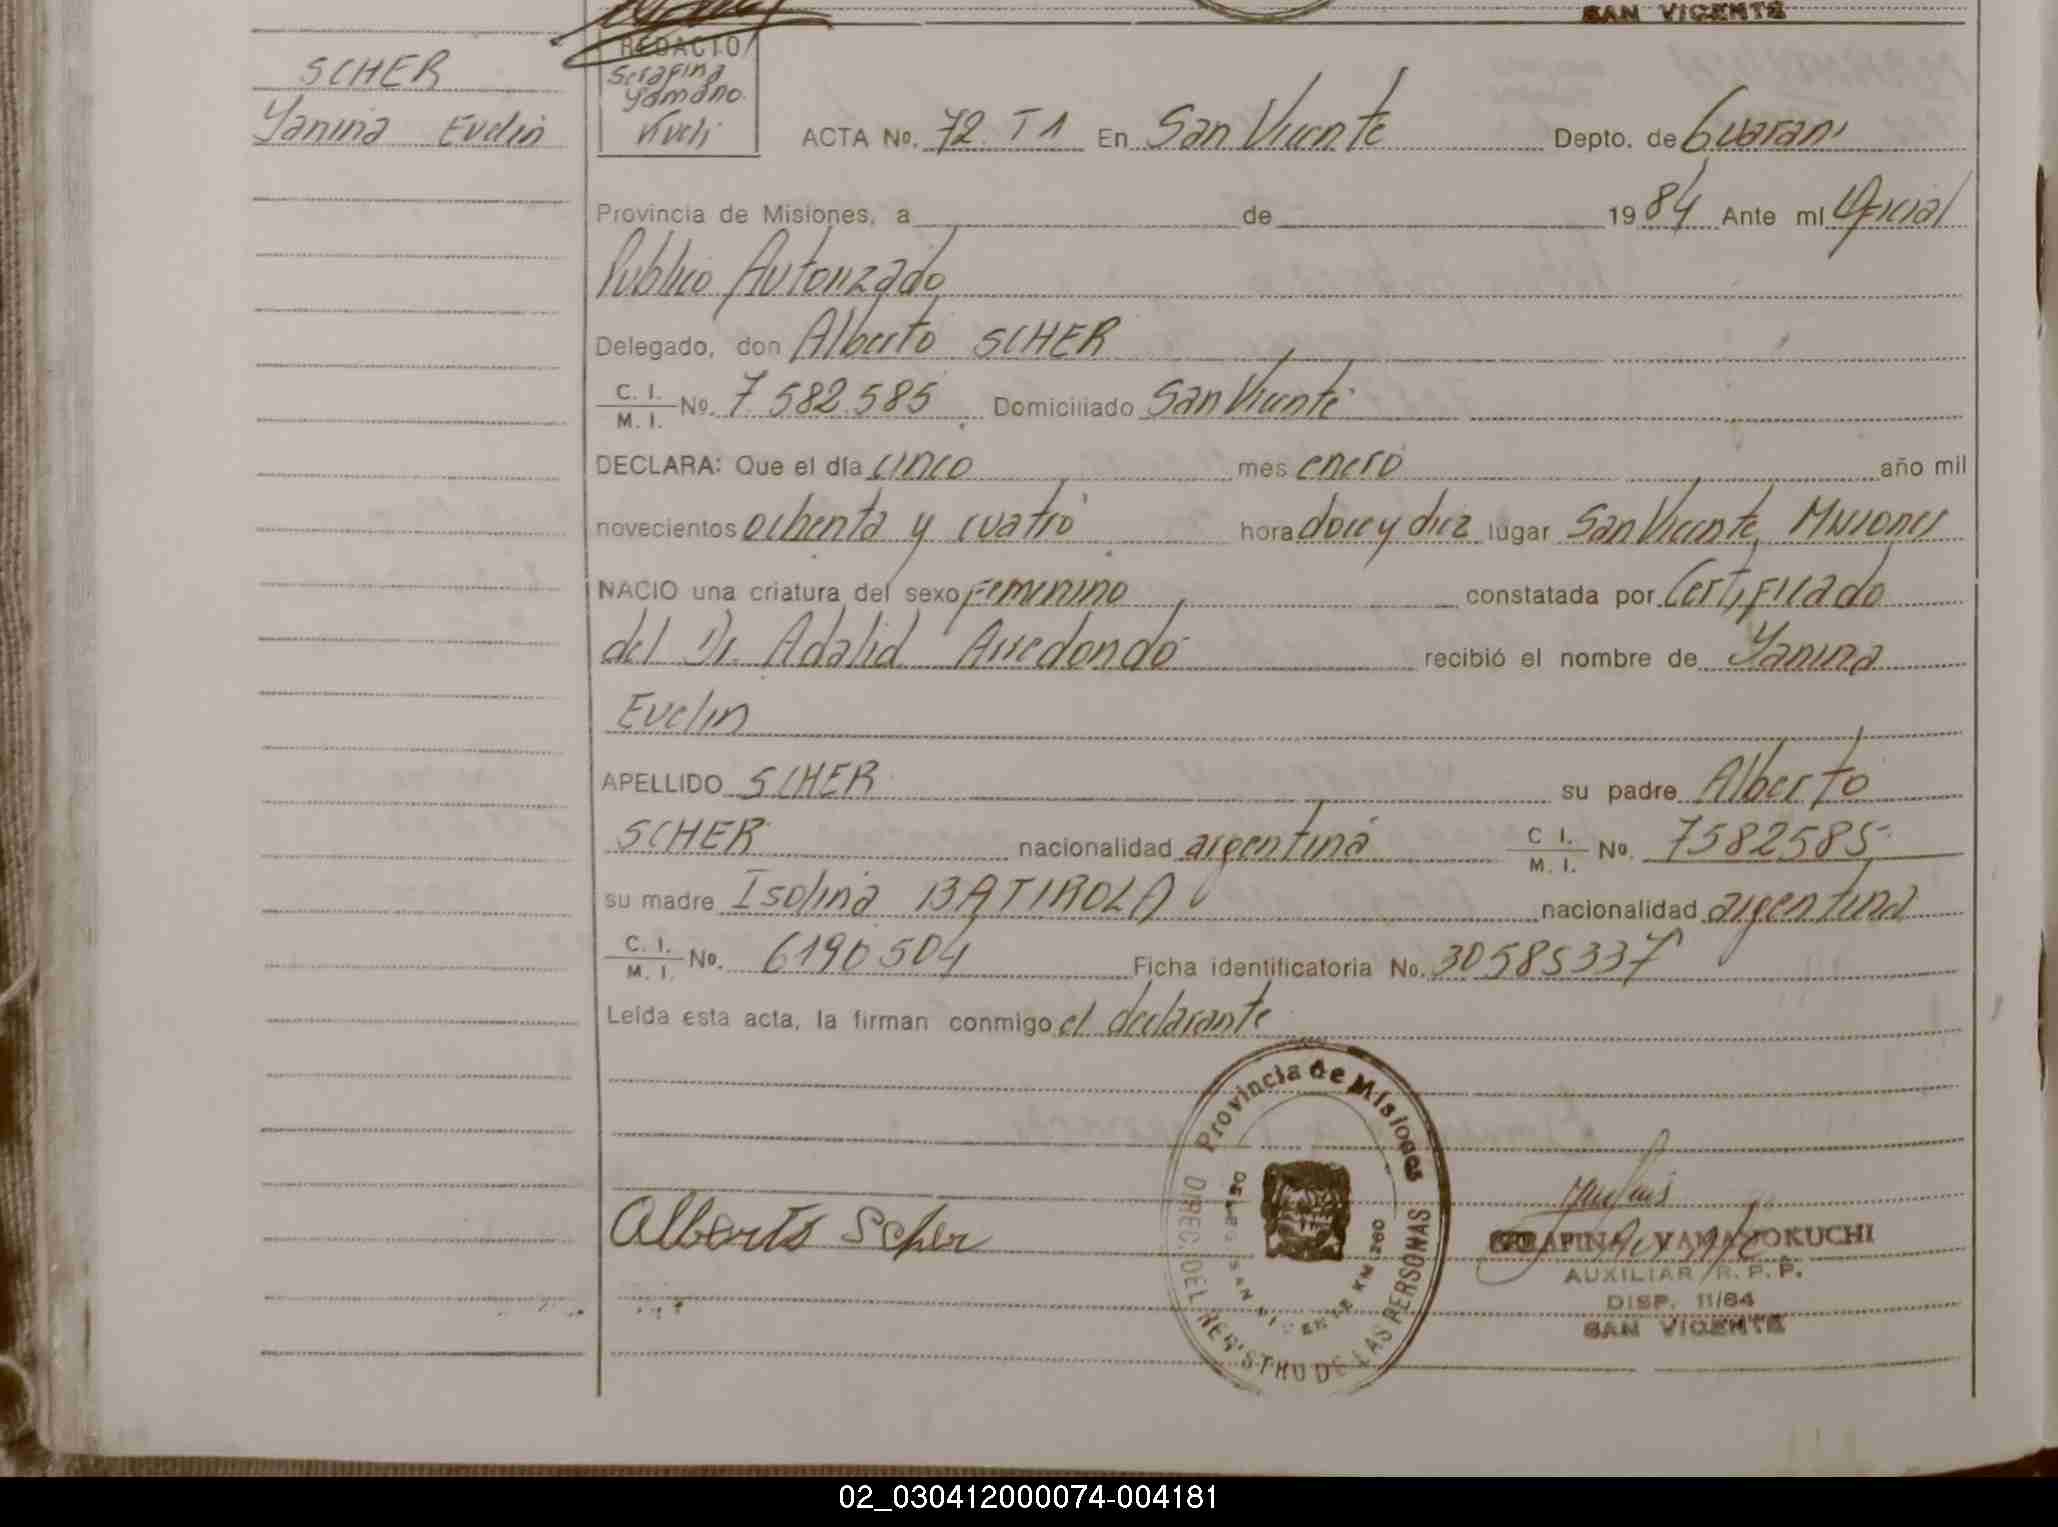 SAN VICENTE
SCHER
Yanina Evelin
REDACTO
Serafina
Yamano
Kuchi
ACTA No. 72. T1 En San Vicente Depto. de Guarani
Provincia de Misiones, a de 1984 Ante mi Oficial
Publico Autorizado
Delegado, don Alberto SCHER
C. I.
M. I. No. 7.582.585 Domiciliado San Vicente
DECLARA: Que el día cinco mes enero año mil
novecientos ochenta y cuatro hora doce y diez lugar San Vicente, Misiones
NACIO una criatura del sexo femenino constatada por Certificado
del Dr. Adalid Arredondo recibió el nombre de Yanina
Evelin
APELLIDO SCHER su padre Alberto
SCHER nacionalidad argentina C. I. M. I. No. 7582585
su madre Isolina BATIROLA nacionalidad argentina
C. I.
M. I. No. 6190504 Ficha identificatoria No. 30585337
Leída esta acta, la firman conmigo el declarante
Provincia de Misiones
DIREC. DEL REGISTRO DE LAS PERSONAS
SAN VICENTE KM 260
Alberto Scher
SERAFINA YAMANOKUCHI
AUXILIAR R. P. P.
DISP. 11/84
SAN VICENTE
02_030412000074-004181